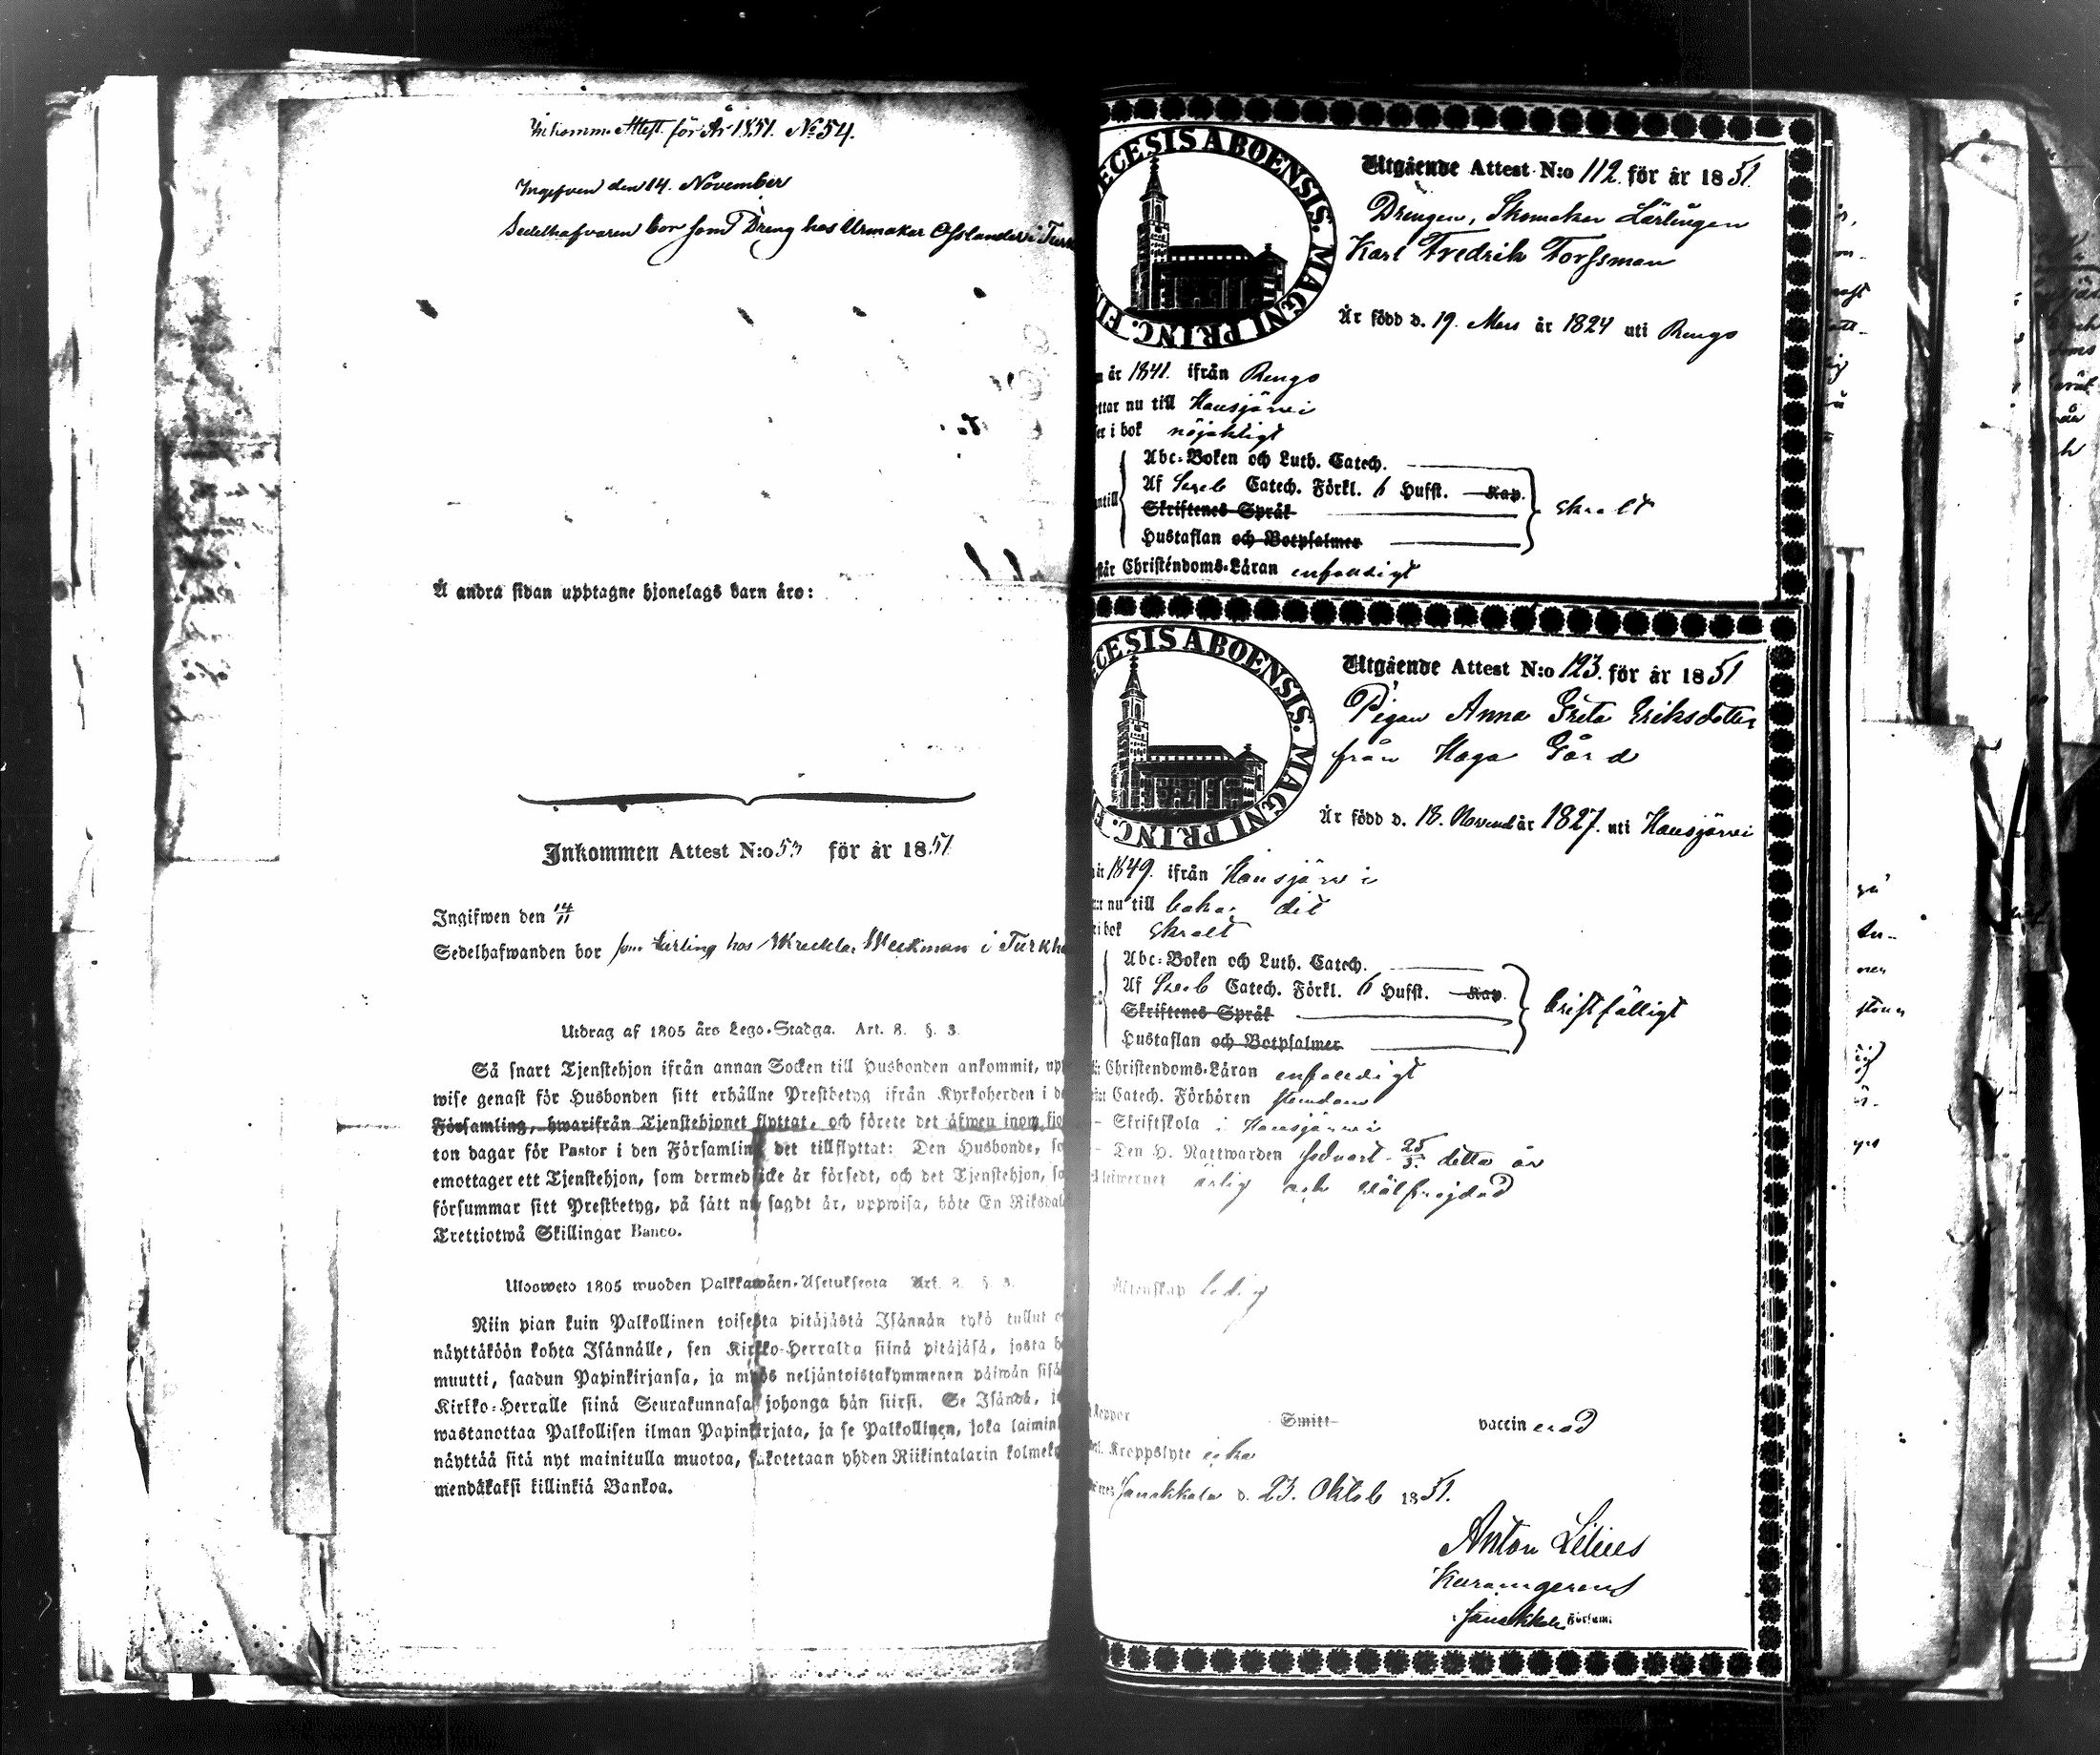 Inkomm. Attest. för År 1851. No 54.
Ingifven den 14. November
Sedelhafvaren bor som Dreng hos Urmakar
Å andra sidan upptagne hjonelags barn äro:
Inkommen Attest N:o 53 för år 1851
Ingifwen den 14/11
Sedelhafwanden bor som Lärling hos Weckman i
Utdrag af 1805 års Lego-Stadga. Art. 8. §. 3.
Så snart Tjenstehjon ifrån annan Socken till Husbonden ankommit, upp
wise genast för Husbonden sitt erhållne Prestbetyg ifrån Kyrkoherden i de
Församling, hwarifrån Tjenstehjonet flyttat, och förete det äfwen inom fjor
ton dagar för Pastor i den Församling det tillflyttat: Den Husbonde, so
emottager ett Tjenstehjon, som dermed icke är försedt, och det Tjenstehjon, so
försummar sitt Prestbetyg, på sätt nu sagdt är, uppwisa, böte En Riksdal
Trettiotwå Skillingar Banco.
Ulosweto 1805 wuoden Palkkawäen-Asetuksesta Art. 8. §. 3.
Niin pian kuin Palkollinen toisesta pitäjästä Isännän tykö tullut o
näyttäköön kohta Isännälle, sen Kirkko-Herralta siinä pitäjäsä, josta h
muutti, saadun Papinkirjansa, ja myös neljäntoistakymmenen päiwän sisä
Kirkko-Herralle siinä Seurakunnasa johonga hän siirsi. Se Isändä, jo
wastanottaa Palkollisen ilman Papinkirjata, ja se Palkollinen, joka laimin
näyttää sitä nyt mainitulla muotoa, sakotetaan yhden Riikintalarin kolmeky
mendäkaksi killinkiä Bankoa.
ECESIS ABOENSIS. MAGNI PRINC. FI
Utgående Attest N:o 112. för år 1851.
Drengen, Skomakar Lärlingen
Karl Fredrik Forssman
Är född d. 19. Mars år 1824 uti Rengo
år 1841. ifrån Rengo
ttar nu till Hausjärvi
er i bok nöjaktigt
Abc-Boken och Luth. Catech.
Af Sveb Catech. Förkl. 6 Hufst. Kap.
ntill Skriftenes Språk
skralt
Hustaflan och Botpsalmer
står Christendoms-Läran enfaldigt
ECESIS ABOENSIS. MAGNI PRINC. FI
Utgående Attest N:o 123. för år 1851
Pigan Anna Greta Eriksdotter
från Haga Gård
Är född d. 18. Novemb år 1827. uti Hausjärvi
år 1849. ifrån Hausjärvi
nu till baka dit
i bok skralt
Abc-Boken och Luth. Catech.
Af Sveb Catech. Förkl. 6 Hufst. Kap.
Skriftenes Språk
bristfälligt
Hustaflan och Botpsalmer
Christendoms-Läran enfaldigt
Catech. Förhören
Skriftskola i Hausjärvi
Den H. Nattwarden sednast 25/5 detta år
lefwernet ärlig och välfrejdad
Äktenskap ledig
koppor Smitt vaccinerad
Kroppslyte icke
Janakkala d. 23. Oktob 1851.
Anton Lilius
Janakkala Försam.